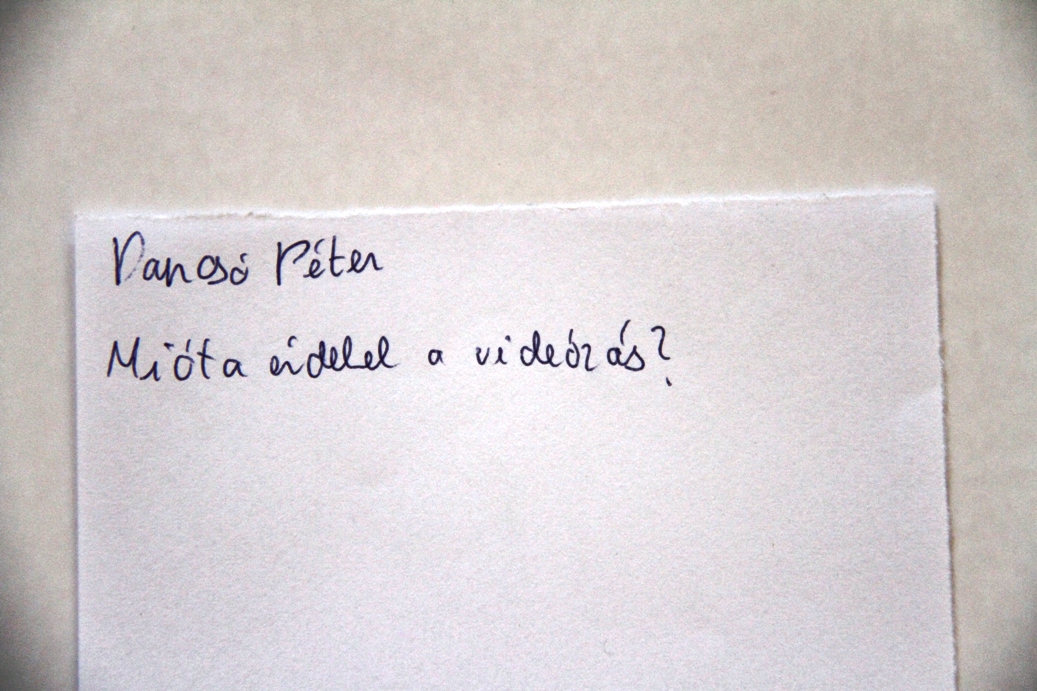 Dancsó Péter
Mióta érdekel a videózás?